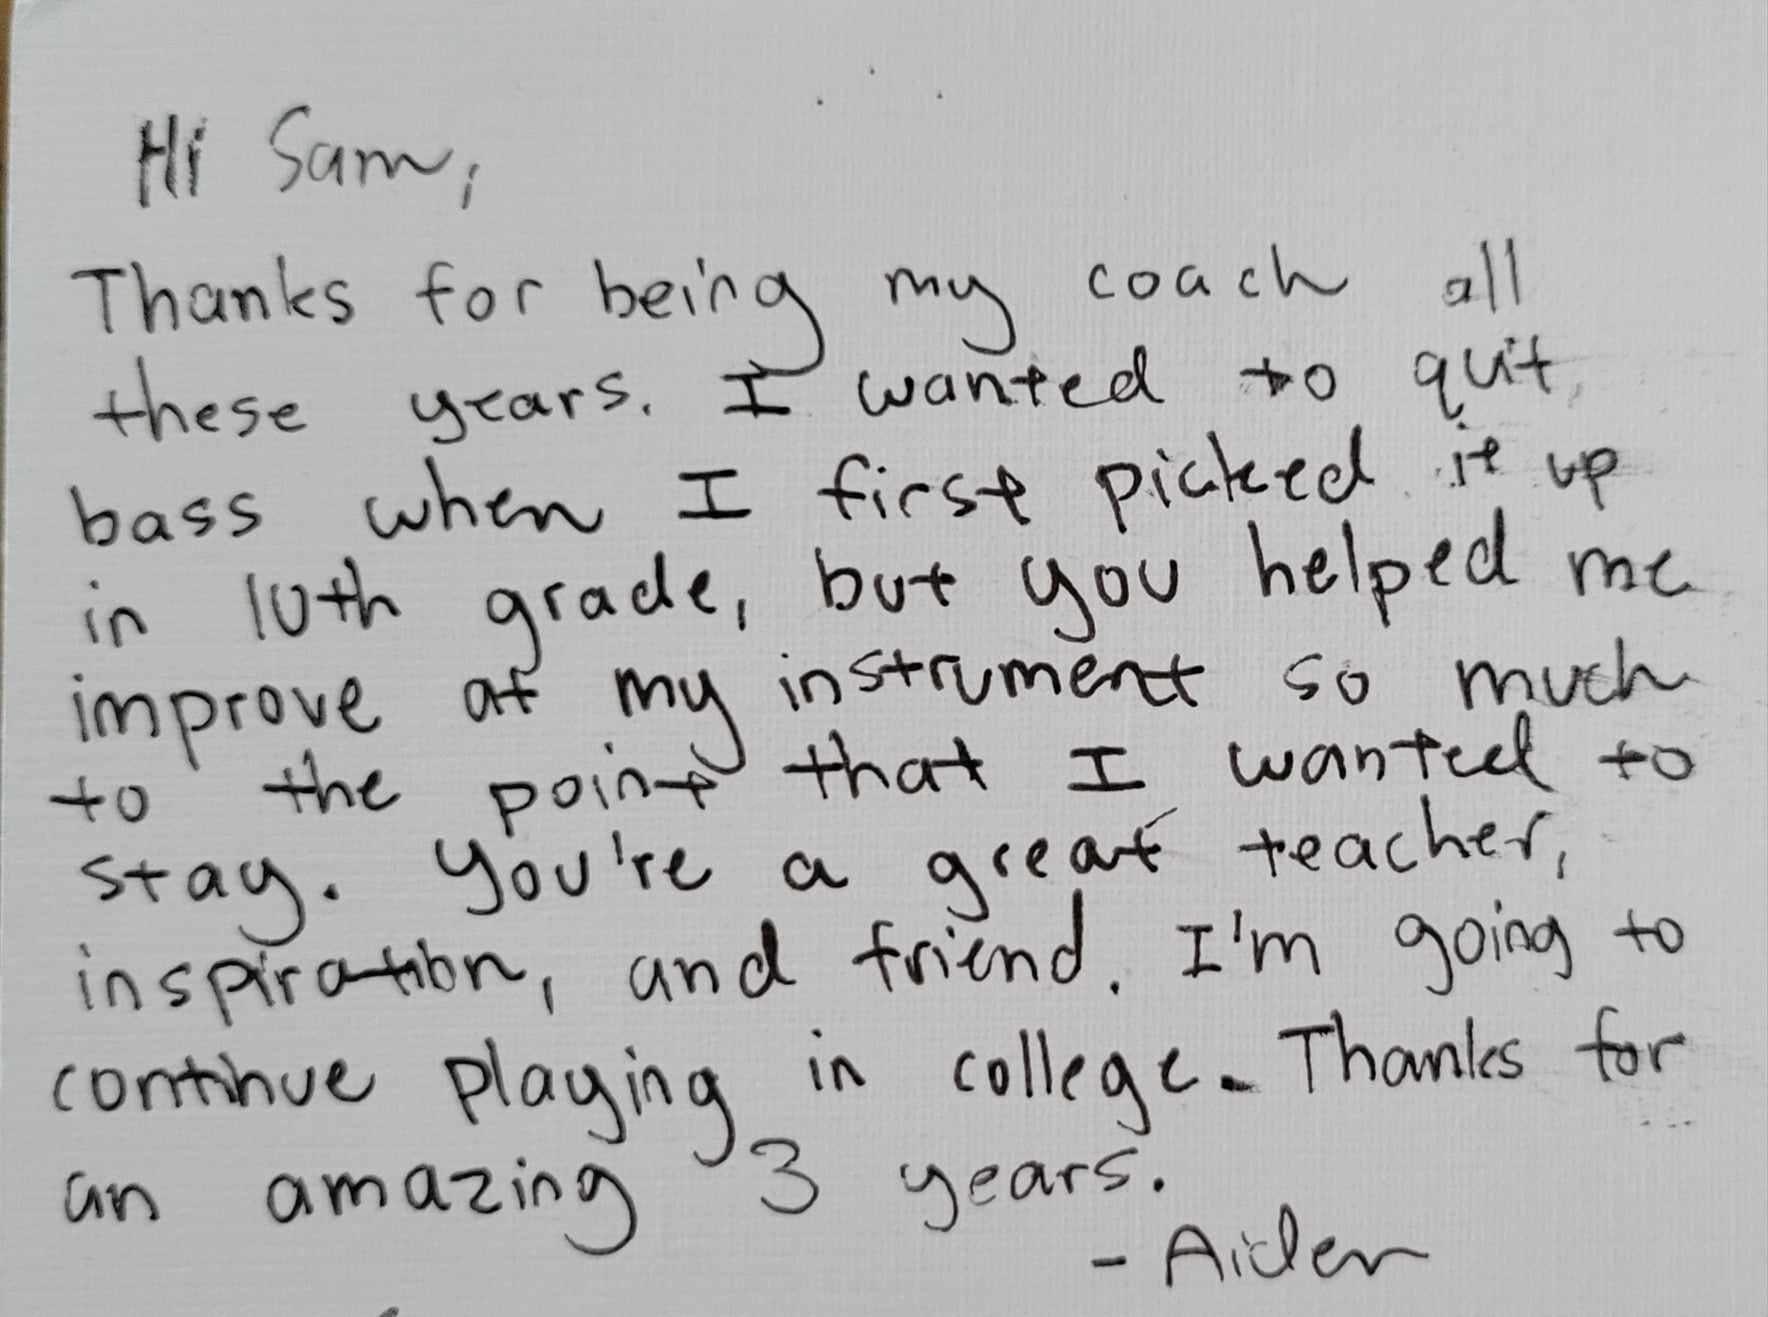 Hi Sam,
Thanks for being my coach all
these years. I wanted to quit
bass when I first picked it up
in 10th grade, but you helped me
improve at my instrument so much
to the point that I wanted to
stay. You're a great teacher,
inspiration, and friend. I'm going to
continue playing in college. Thanks for
an amazing 3 years.
- Aiden